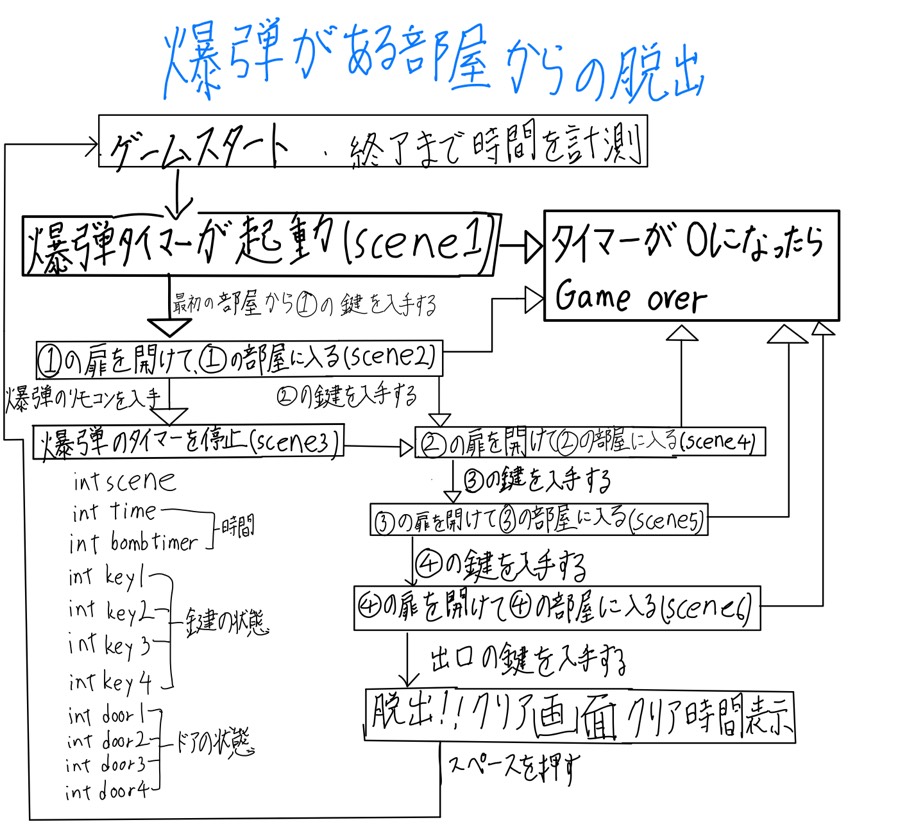 爆弾がある部屋からの脱出
ゲームスタート ・終了まで時間を計測
爆弾タイマーが起動(scene1)
タイマーが0になったら
Game over
最初の部屋から①の鍵を入手する
①の扉を開けて、①の部屋に入る(scene2)
爆弾のリモコンを入手
②の鍵を入手する
爆弾のタイマーを停止(scene3)
②の扉を開けて②の部屋に入る(scene4)
③の鍵を入手する
③の扉を開けて③の部屋に入る(scene5)
④の鍵を入手する
④の扉を開けて④の部屋に入る(scene6)
出口の鍵を入手する
脱出!!クリア画面 クリア時間表示
スペースを押す
int scene
int time
int bombtimer
時間
int key1
int key2
int key3
int key4
鍵の状態
int door1
int door2
int door3
int door4
ドアの状態